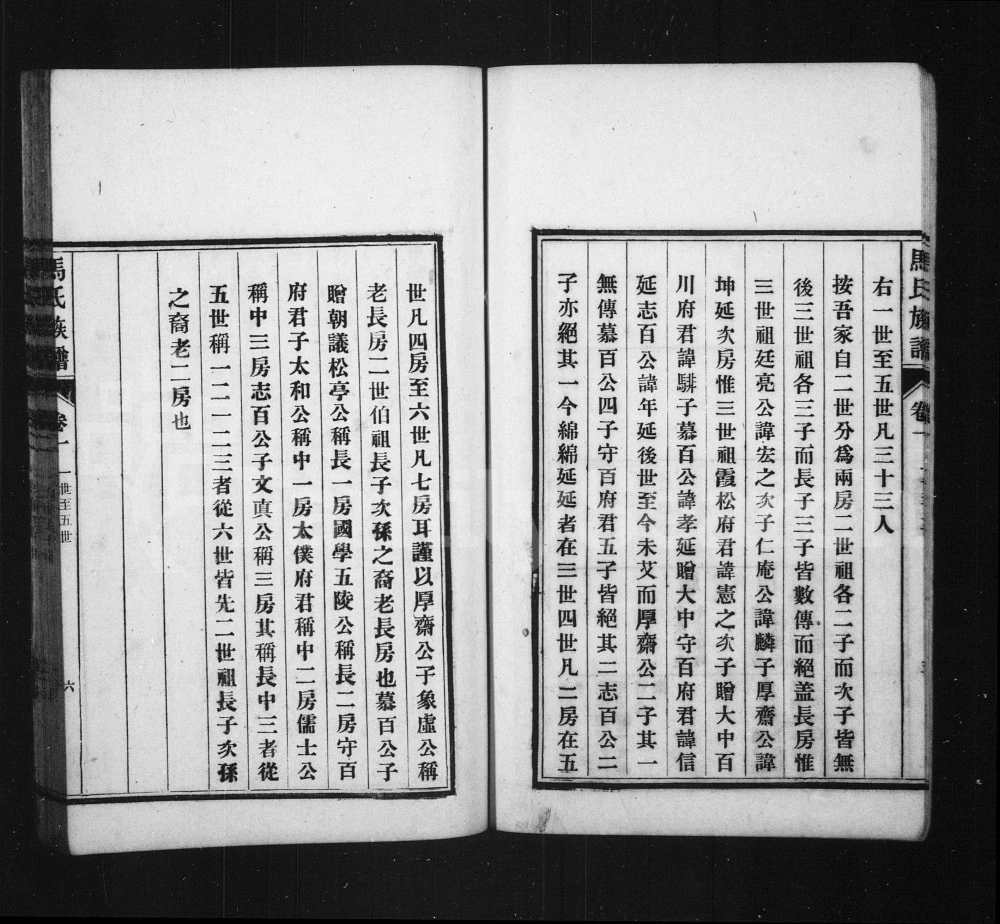 馬氏族譜
卷一
右一世至五世凡三十三人
按吾家自二世分為兩房二世祖各二子而次子皆無
後三世祖各三子而長子三子皆數傳而絕盖長房惟
三世祖廷亮公諱宏之次子仁庵公諱麟子厚齋公諱
坤延次房惟三世祖霞松府君諱憲之次子贈大中百
川府君諱騑子慕百公諱孝延贈大中守百府君諱信
延志百公諱年延後世至今未艾而厚齋公二子其一
無傳慕百公四子守百府君五子皆絕其二志百公二
子亦絕其一今綿綿延延者在三世四世凡二房在五
世凡四房至六世凡七房耳謹以厚齋公子象虛公稱
老長房二世伯祖長子次孫之裔老長房也慕百公子
贈朝議松亭公稱長一房國學五陵公稱長二房守百
府君子太和公稱中一房太僕府君稱中二房儒士公
稱中三房志百公子文真公稱三房其稱長中三者從
五世稱一二一二三者從六世皆先二世祖長子次孫
之裔老二房也
馬氏族譜
卷一
一世至五世
六